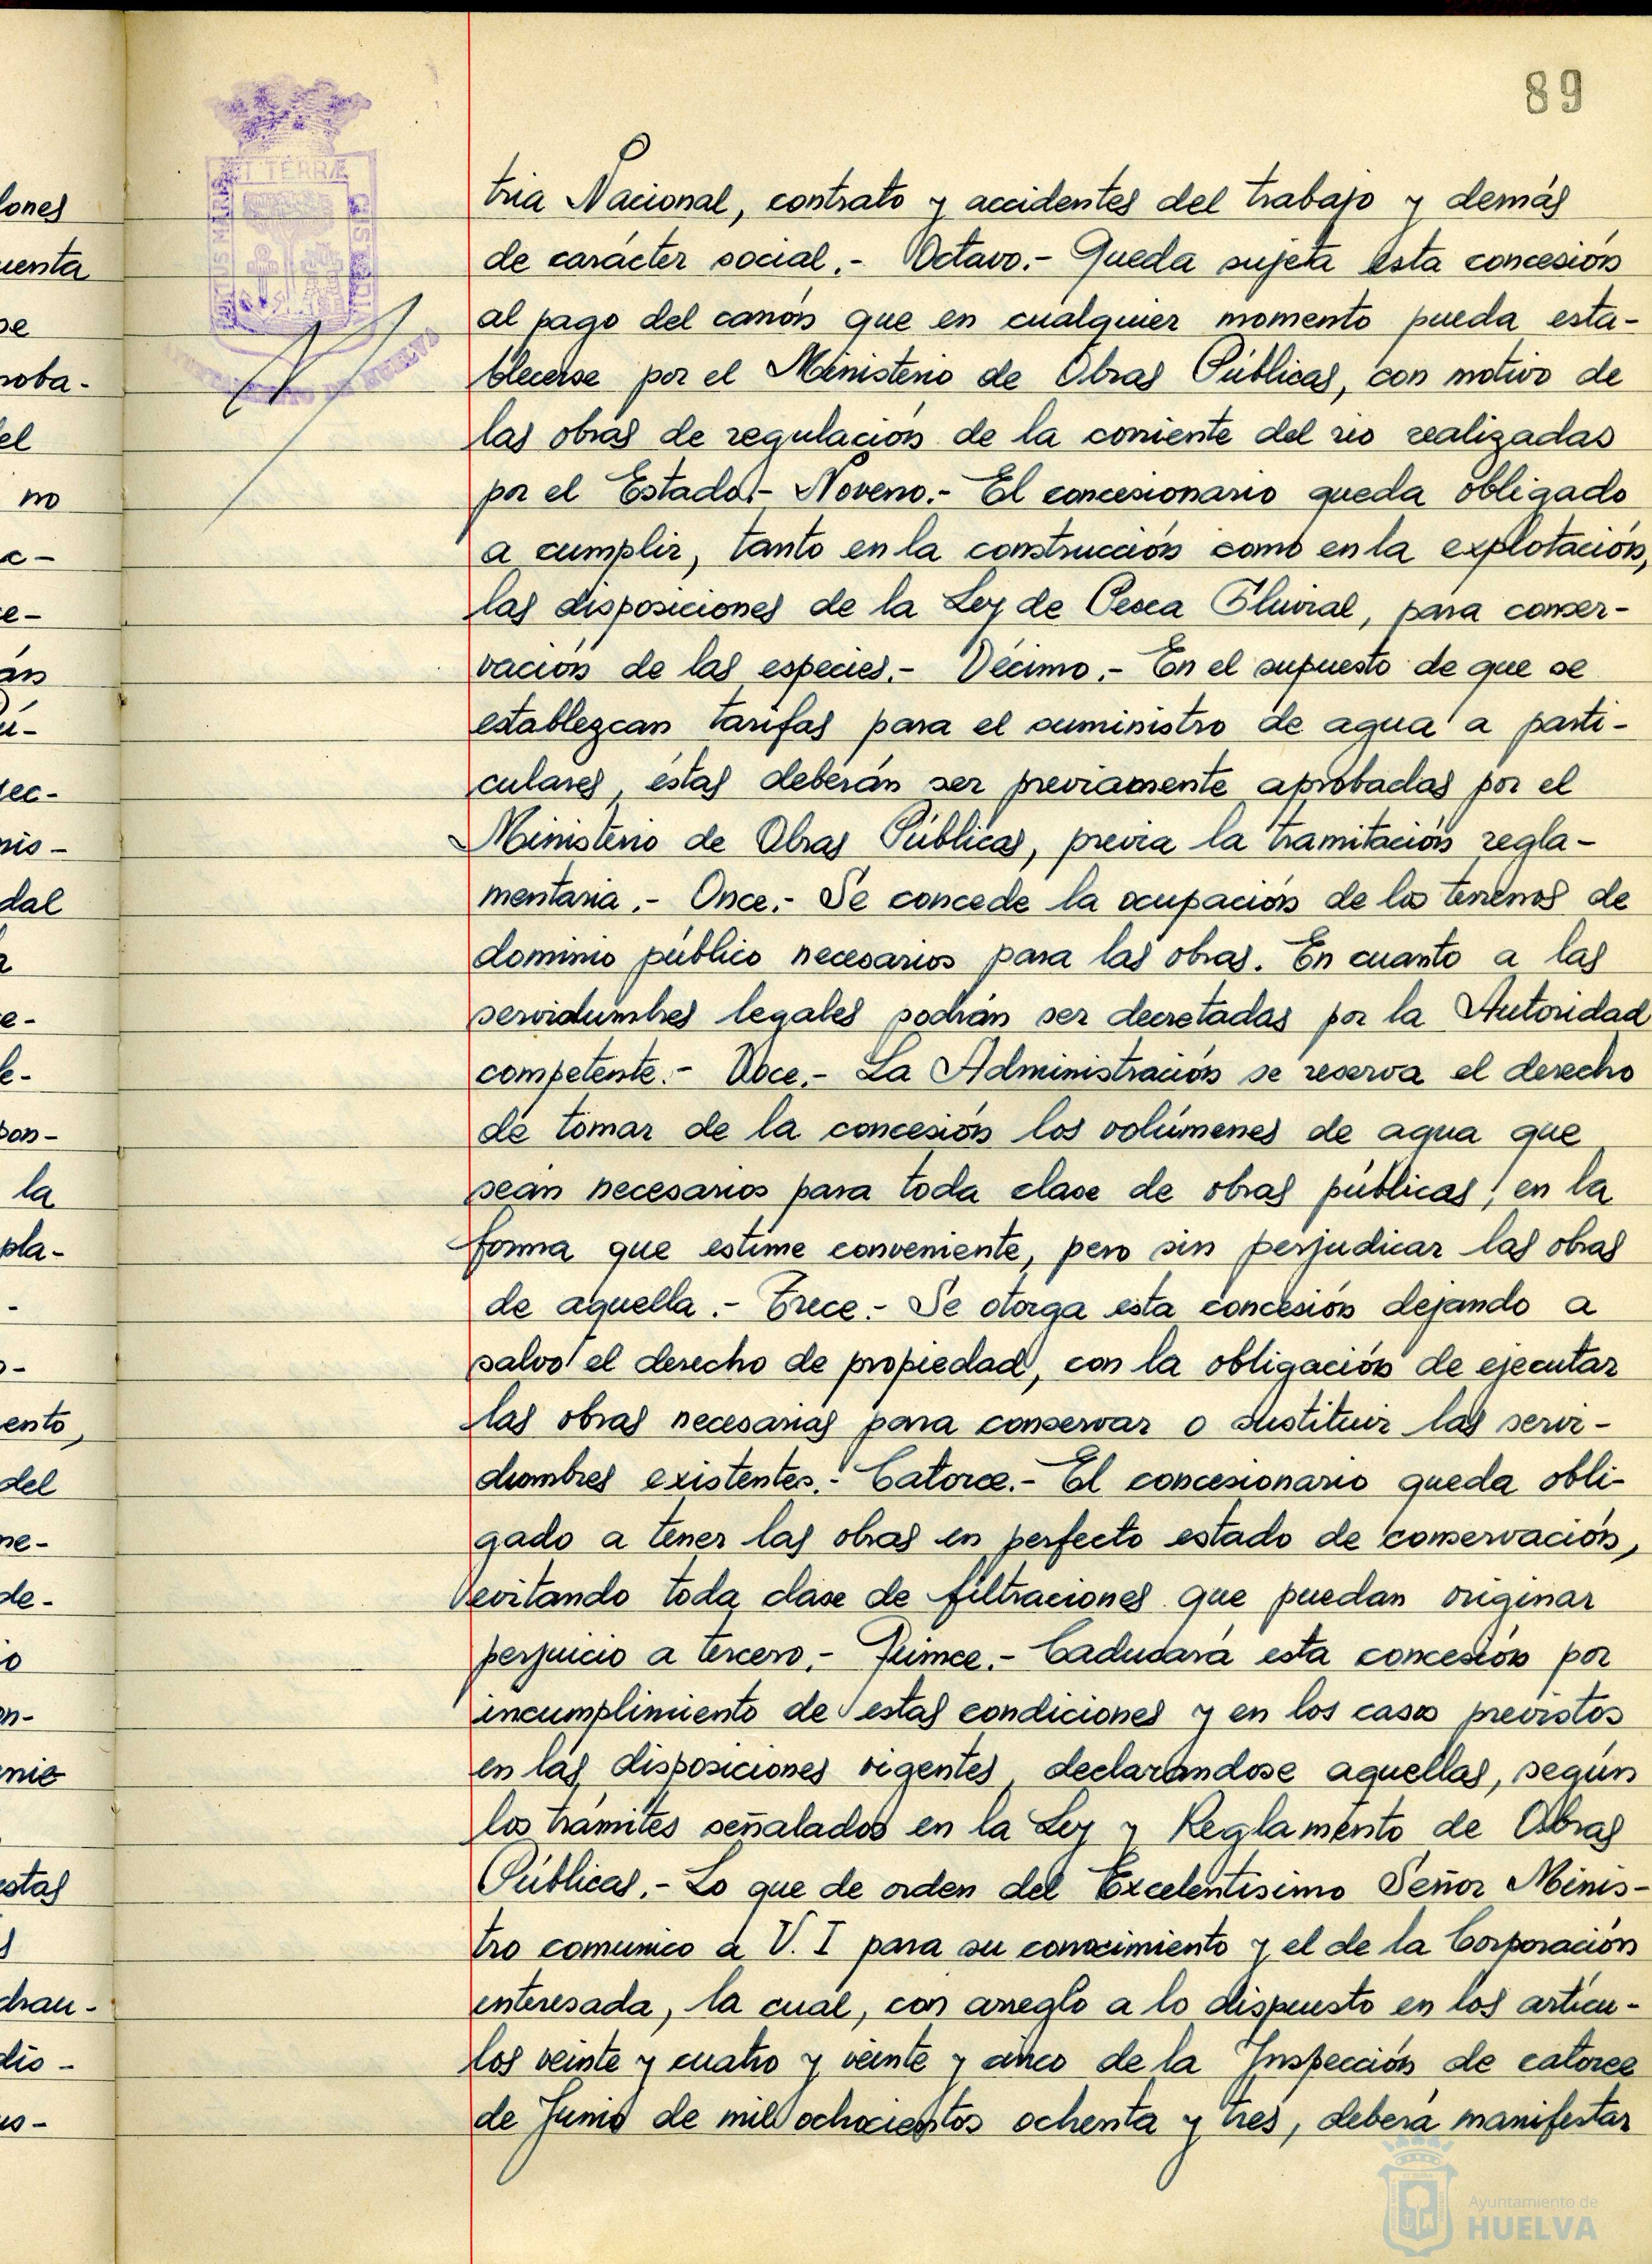 89
tria Nacional, contrato y accidentes del trabajo y demás
de carácter social.- Octavo.- Queda sujeta esta concesión
al pago del canón que en cualquier momento pueda esta-
blecerse por el Ministerio de Obras Públicas, con motivo de
las obras de regulación de la corriente del rio realizadas
por el Estado.- Noveno.- El concesionario queda obligado
a cumplir, tanto en la construcción como en la explotación,
las disposiciones de la Ley de Pesca Fluvial, para conser-
vación de las especies.- Décimo.- En el supuesto de que se
establezcan tarifas para el suministro de agua a parti-
culares, éstas deberán ser previamente aprobadas por el
Ministerio de Obras Públicas, previa la tramitación regla-
mentaria.- Once.- Se concede la ocupación de los terrenos de
dominio público necesarios para las obras. En cuanto a las
servidumbres legales podrán ser decretadas por la Autoridad
competente.- Doce.- La Administración se reserva el derecho
de tomar de la concesión los volúmenes de agua que
sean necesarios para toda clase de obras públicas, en la
forma que estime conveniente, pero sin perjudicar las obras
de aquella.- Trece.- Se otorga esta concesión dejando a
salvo el derecho de propiedad, con la obligación de ejecutar
las obras necesarias para conservar o sustituir las servi-
dumbres existentes.- Catorce.- El concesionario queda obli-
gado a tener las obras en perfecto estado de conservación,
evitando toda clase de filtraciones que puedan originar
perjuicio a tercero.- Quince.- Caducará esta concesión por
incumplimiento de estas condiciones y en los casos previstos
en las disposiciones vigentes, declarandose aquellas, según
los trámites señalados en la Ley y Reglamento de Obras
Públicas.- Lo que de orden del Excelentísimo Señor Minis-
tro comunico a V. I para su conocimiento y el de la Corporación
interesada, la cual, con arreglo a lo dispuesto en los artícu-
los veinte y cuatro y veinte y cinco de la Inspección de catorce
de Junio de mil ochocientos ochenta y tres, deberá manifestar
ET TERRÆ
AYUNTAMIENTO DE HUELVA
Ayuntamiento de
HUELVA